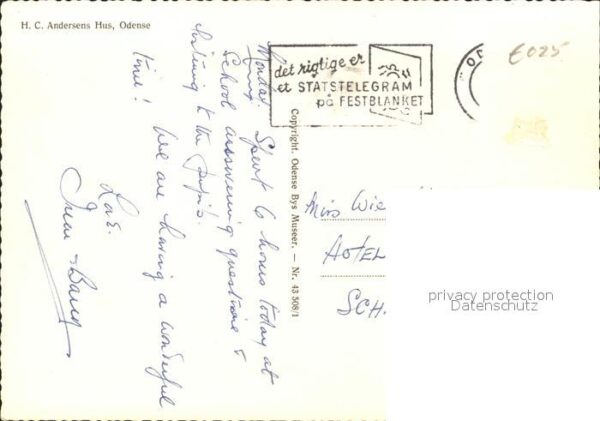 H. C. Andersens Hus, Odense
det rigtige er
et STATSTELEGRAM
på FESTBLANKET
OD
E025
Copyright. Odense Bys Museer. — Nr. 43 308/1
Monday
Spent 6 hours today at
School answering questions &
listening to the pupils.
We are having a wonderful
time!
Love.
Miss Wie
HOTEL
SCH
privacy protection
Datenschutz